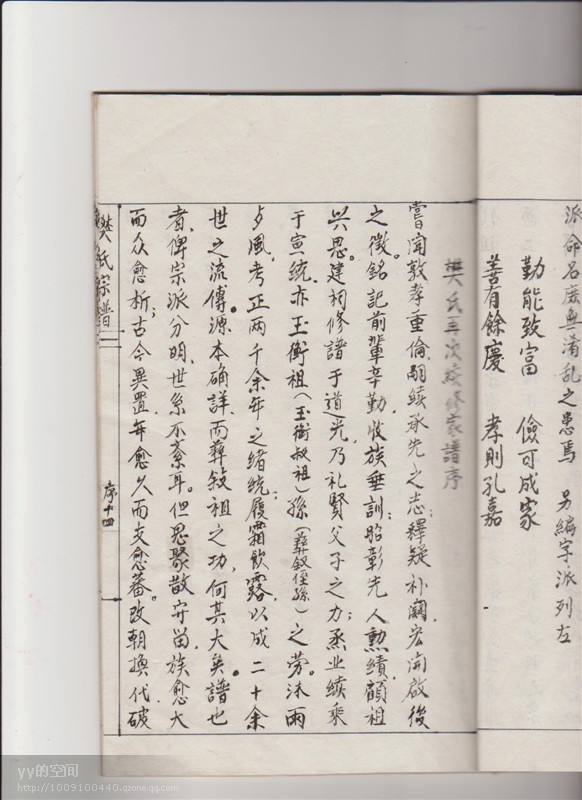 派命名庶無淆乱之患焉 另編字派列左
勤能致富 儉可成家
善有餘慶 孝則孔嘉
樊氏三次續修家譜序
嘗闻敦孝重倫,嗣续承先之志;釋疑补闕,宏闹啟後
之徵。銘記前輩辛勤,收族垂訓;昭彰先人勲績,顧祖
兴思。建祠修譜于道光,乃礼賢父子之力;丞业续乘
于宣统,亦玉衡祖(玉衡叔祖)孫(彝叙侄孫)之劳。沐雨
夕風,考正两千余年之緒統;履霜飲露,以成二十余
世之流傳。源本确詳,而彝敍祖之功,何其大矣。譜也
者,俾宗派分明,世系不紊耳。但思聚散安留,族愈大
而众愈析;古今異置,年愈久而支愈蕃。改朝換代,破
樊氏宗譜
序十四
yy的空间
http://1009100440.qzone.qq.com